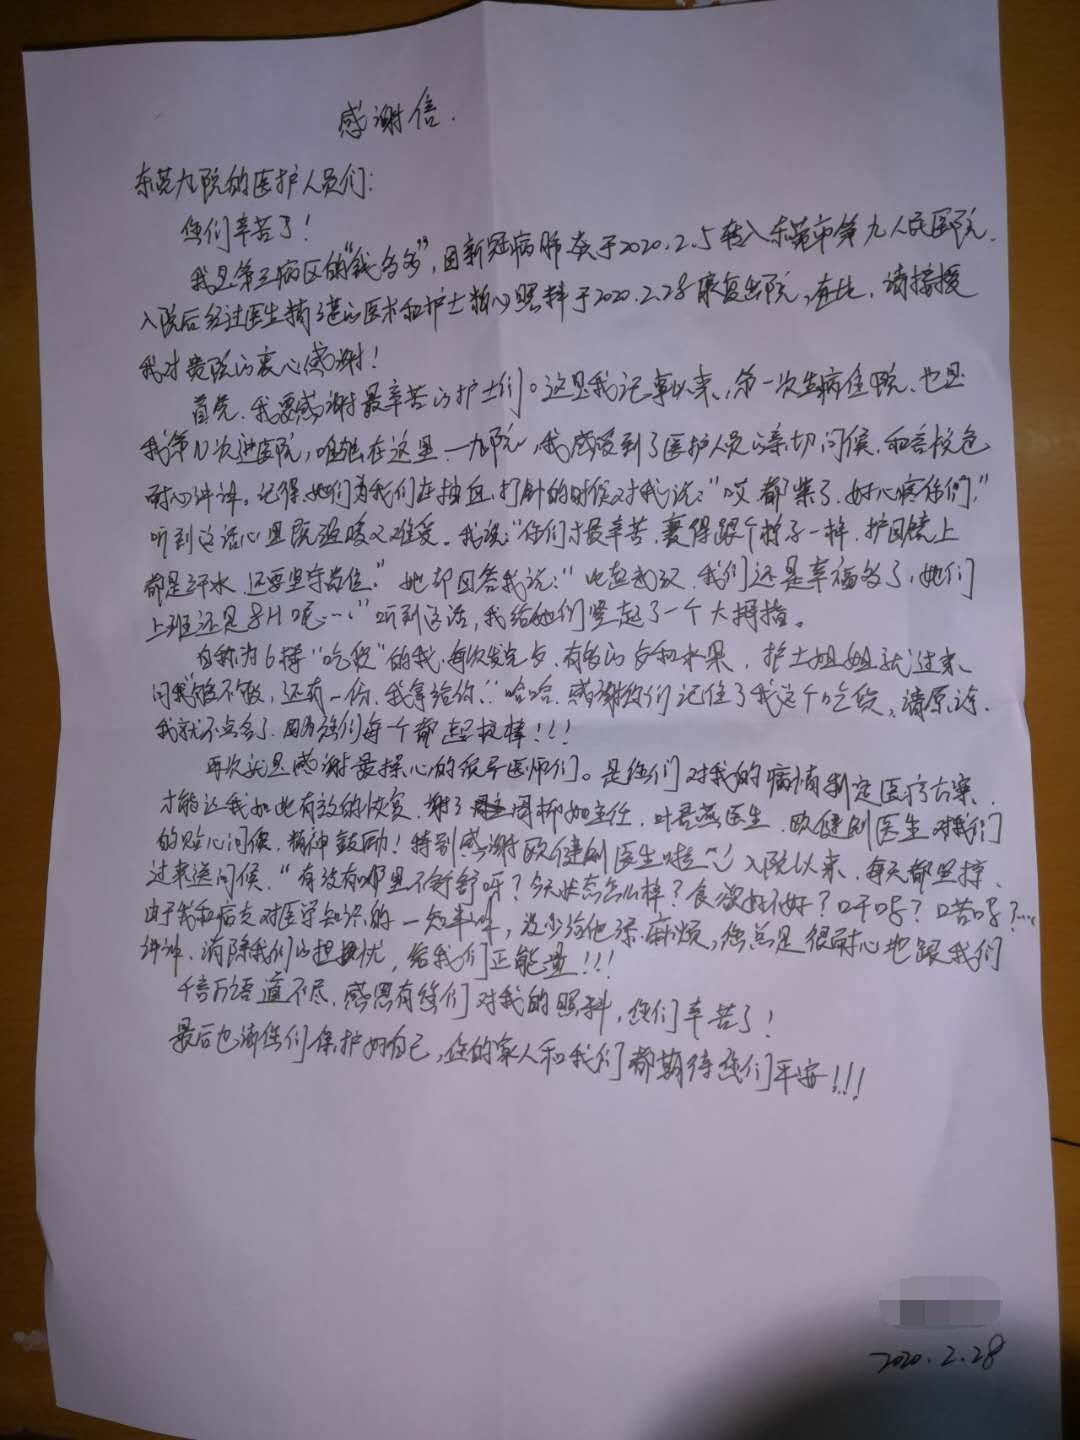 感谢信.
东莞九院的医护人员们:
您们辛苦了!
我是第三病区的"钱多多",因新冠病肺炎于2020.2.5转入东莞市第九人民医院.
入院后经过医生精湛的医术和护士精心照料于2020.2.28康复出院,在此,请接受
我对贵院的衷心感谢!
首先.我要感谢最辛苦的护士们。这是我记事以来,第一次生病住院、也是
我第几次进医院,唯独在这里一九院,我感受到了医护人员的亲切问候.和言悦色
耐心讲译。记得她们为我们在抽血、打针的时候对我说:"哎都紫了,好心疼你们."
听到这话心里既温暖又难受。我说:"你们才最辛苦,裹得跟个粽子一样,护目镜上
都是汗水,还要坚守岗位."她却回答我说:"比起武汉,我们还是幸福多了,她们
上班还是8H呢…"听到这话,我给她们竖起了一个大拇指。
自称为6楼"吃货"的我,每次发完夕,有多的夕和水果,护士姐姐就过来
问我"饱不饱,还有一份,我拿给你."哈哈.感谢你们记住了我这个吃货,请原谅.
我就不点名了.因为您们每一个都超级棒!!!
再次就是感谢最操心的领导医师们。是你们对我的病情制定医疗方案,
才能让我如此有效的恢复.谢了周柳如主任.叶君燕医生.欧健创医生对我们
的贴心问候,精神鼓励!特别感谢欧健创医生啦~入院以来,每天都坚持
过来送问候."有没有哪里不舒舒呀?今天状态怎么样?食欲好不好?口干吗?口苦吗?…
由于我和病友对医学知识的一知半解,没少给他添麻烦,您总是很耐心地跟我们
讲解.消除我们的担忧,给我们正能量!!!
千言万语道不尽,感恩有您们对我的照料,您们辛苦了!
最后也请您们保护好自己,您的家人和我们都期待您们平安!!!
2020.2.28